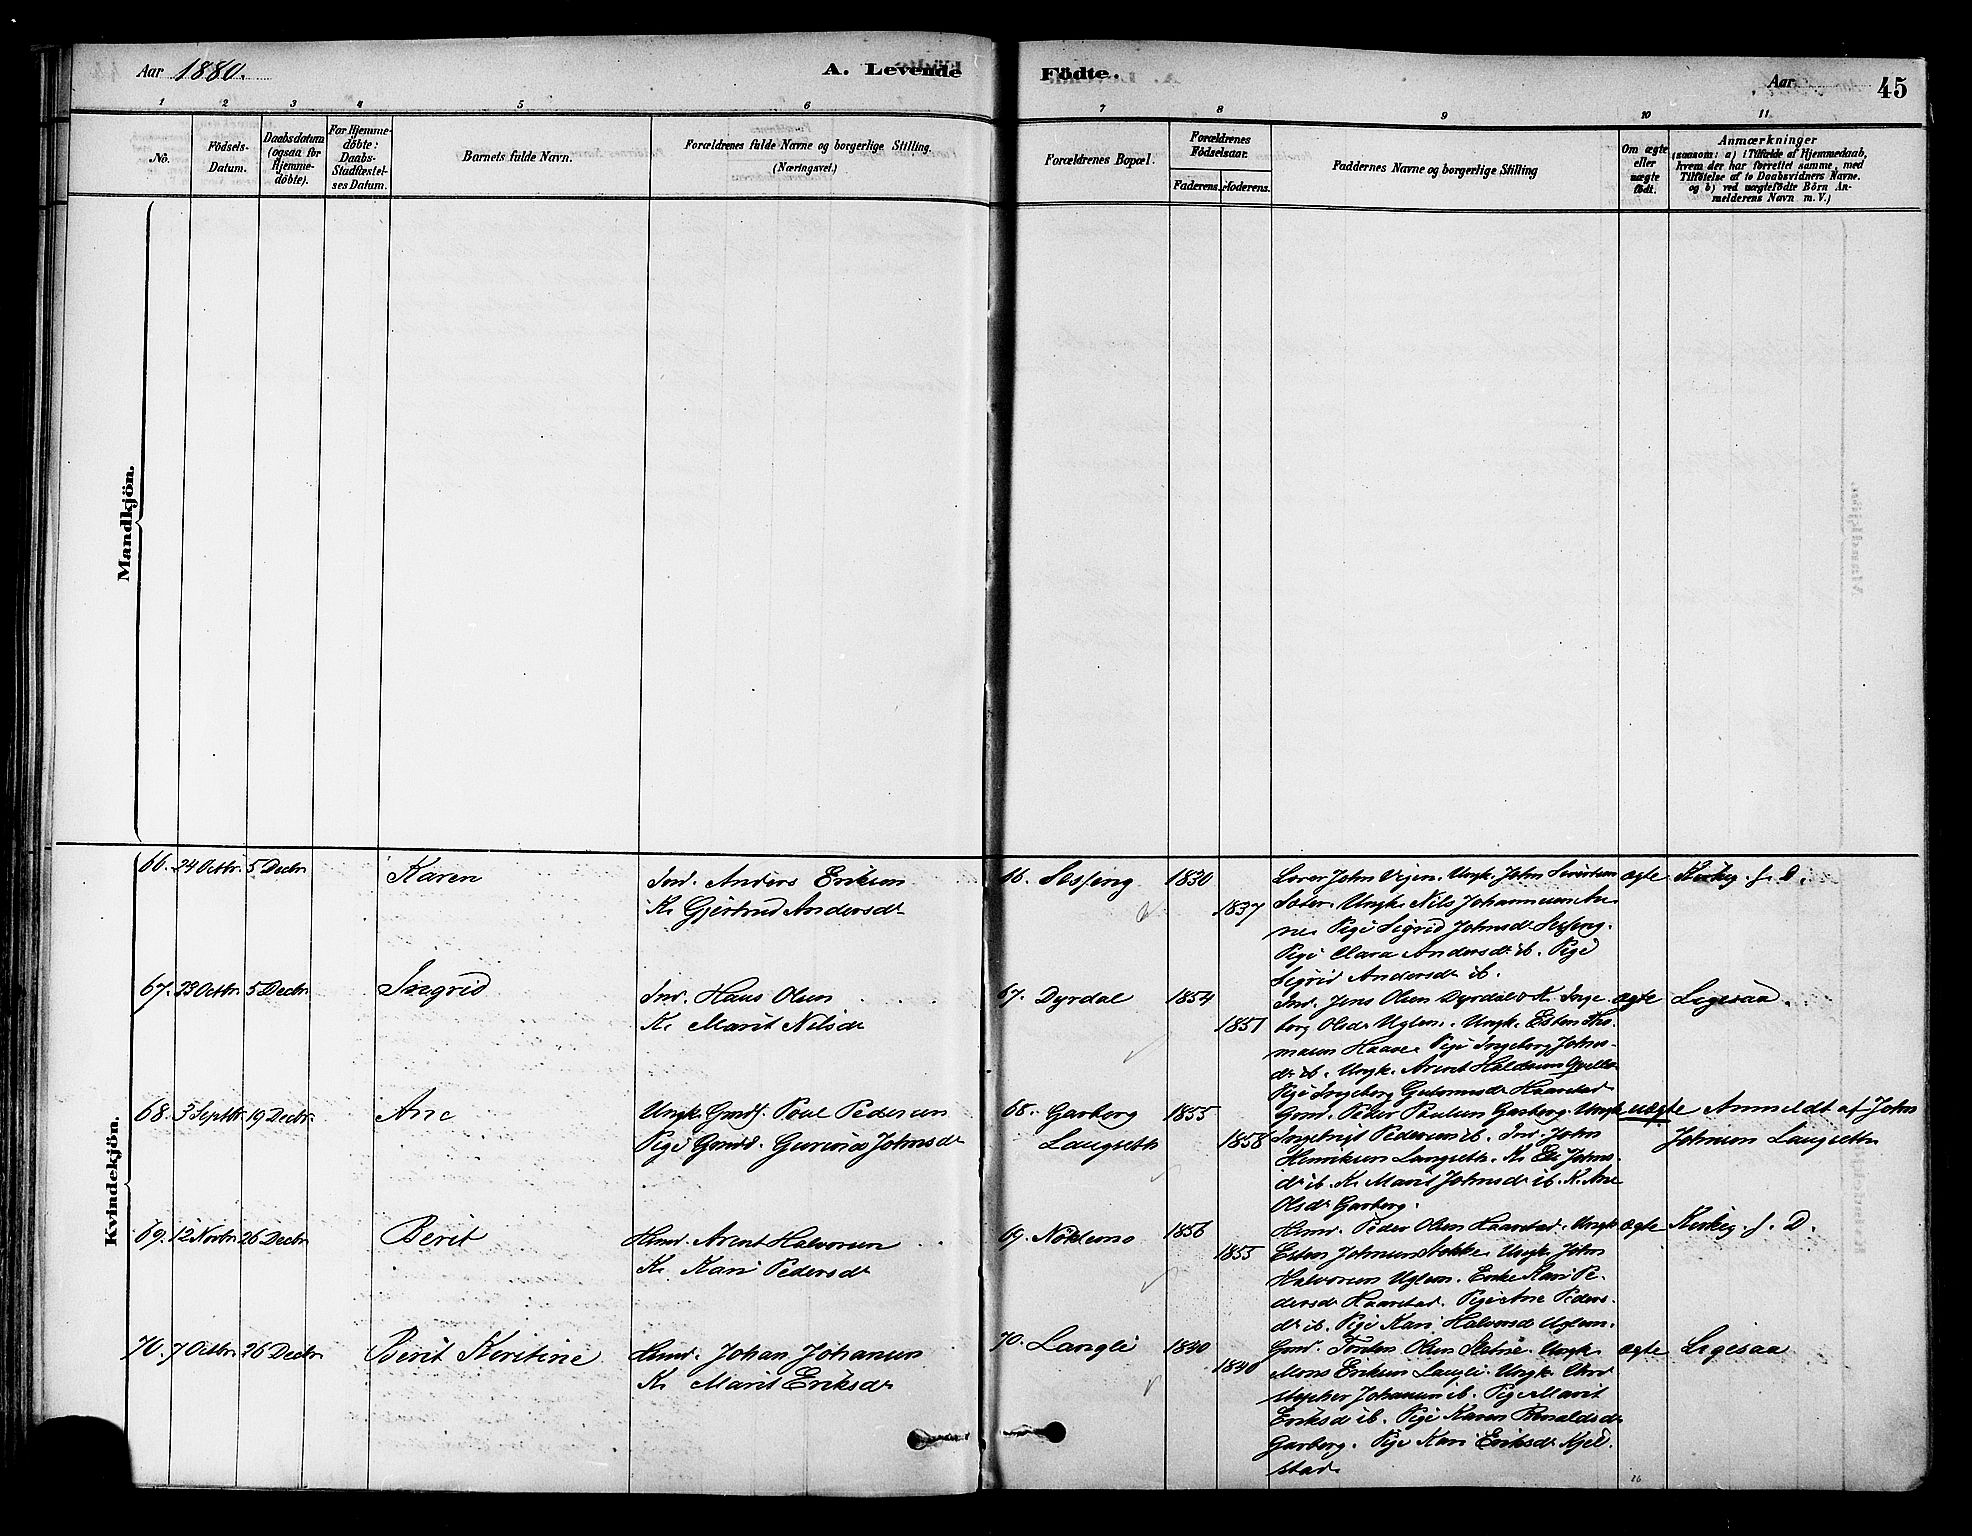 Aar 1880. A. Levende Födte. Aar 45
1 2 3 4 5 6 7 8 9 10 11
No.
Födsels-
Datum.
Daabsdatum
(ogsaa for
Hjemme-
döbte).
For Hjemme-
döbte:
Daabs-
Stadfæstel-
ses Datum.
Barnets fulde Navn.
Forældrenes fulde Navne og borgerlige Stilling.
(Næringsvei.)
Forældrenes Bopæl.
Forældrenes
Födselsaar.
Faderens. Moderens.
Faddernes Navne og borgerlige Stilling
Om ægte
eller
uægte
födt.
Anmærkninger
(saasom: a) i Tilfælde af Hjemmedaab,
hvem der har forrettet samme, med
Tilföielse af to Daabsvidners Navne.
og b) ved uægtefödte Börn An-
melderens Navn m. V.)
Mandkjön.
Kvindekjön.
66. 24 Octbr. 5 Decbr. Karen
Ind. Anders Eriksen
K. Gjertrud Andersdr
66. Sesseng 1830
1837
Lærer John Vejen. Ungk. John Sivertsen
Sæter. Ungk. Nils Johannesen Au-
ne. Pige Sigrid Johnsdr Sesseng.
Pige Clara Andersdr ib. Pige
Sigrid Andersdr ib.
ægte Kirkeg. f. D.
67. 23 Octbr. 5 Decbr. Ingrid
Ind. Hans Olsen
K. Marit Nilsdr
67. Dyrdal 1854
1851
Ind. Jens Olsen Dyrdal & K. Inge-
borg Olsdr Uglem. Ungk. Esten Tho-
masen Haave. Pige Ingeborg Johns-
dr ib. Ungk. Arent Haldosen
Pige Ingeborg Guttormsdr Haarstad
ægte Ligesaa.
68. 3 Septbr. 19 Decbr. Ane
Ungk. Gmdf. Poul Pedersen
Pige Gmdd. Gurina Johnsdr
68. Garberg
Langseth
1855
1858
Gmd. Peder Paulsen Garberg. Ungk.
Ingebrigt Pedersen ib. Ind. John
Henriksen Langseth. K. Eli Johns-
dr ib. K. Marit Johnsdr ib. K. Ane
Olsdr Garberg.
uægte Anmeldt af John
Johnsen Langseth
69. 12 Novbr. 26 Decbr. Berit
Hmd. Arent Halvorsen
K. Kari Pedersdr
69. Nöklemo 1856
1855
Hmd. Peder Olsen Haarstad. Ungk.
Esten Johnsen Stokke. Ungk. John
Halvorsen Uglem. Enke Kari Pe-
dersdr Haarstad. Pige Ane Peders-
dr ib. Pige Kari Halvorsdr Uglem.
ægte Kirkeg. f. D.
70. 7 Octbr. 26 Decbr. Berit Kirstine
Hmd. Johan Johansen
K. Marit Eriksdr
70. Langli 1840
1840
Gmd. Torsten Olsen Slotne. Ungk.
Mons Eriksen Langli. Ungk.
Johansen ib. Pige Marit
Eriksdr ib. Pige Karen Ronaldsdr
Garberg. Pige Kari Eriksdr Kjel-
stad.
ægte Ligesaa